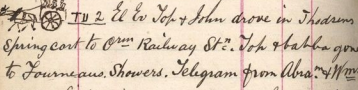 TU 2 El Ev Top & John drove in Thodsens
Spring cart to Orm Railway Stn. Top & batba gone
to Fourneaus. Showers. Telegram from Abram & Wm